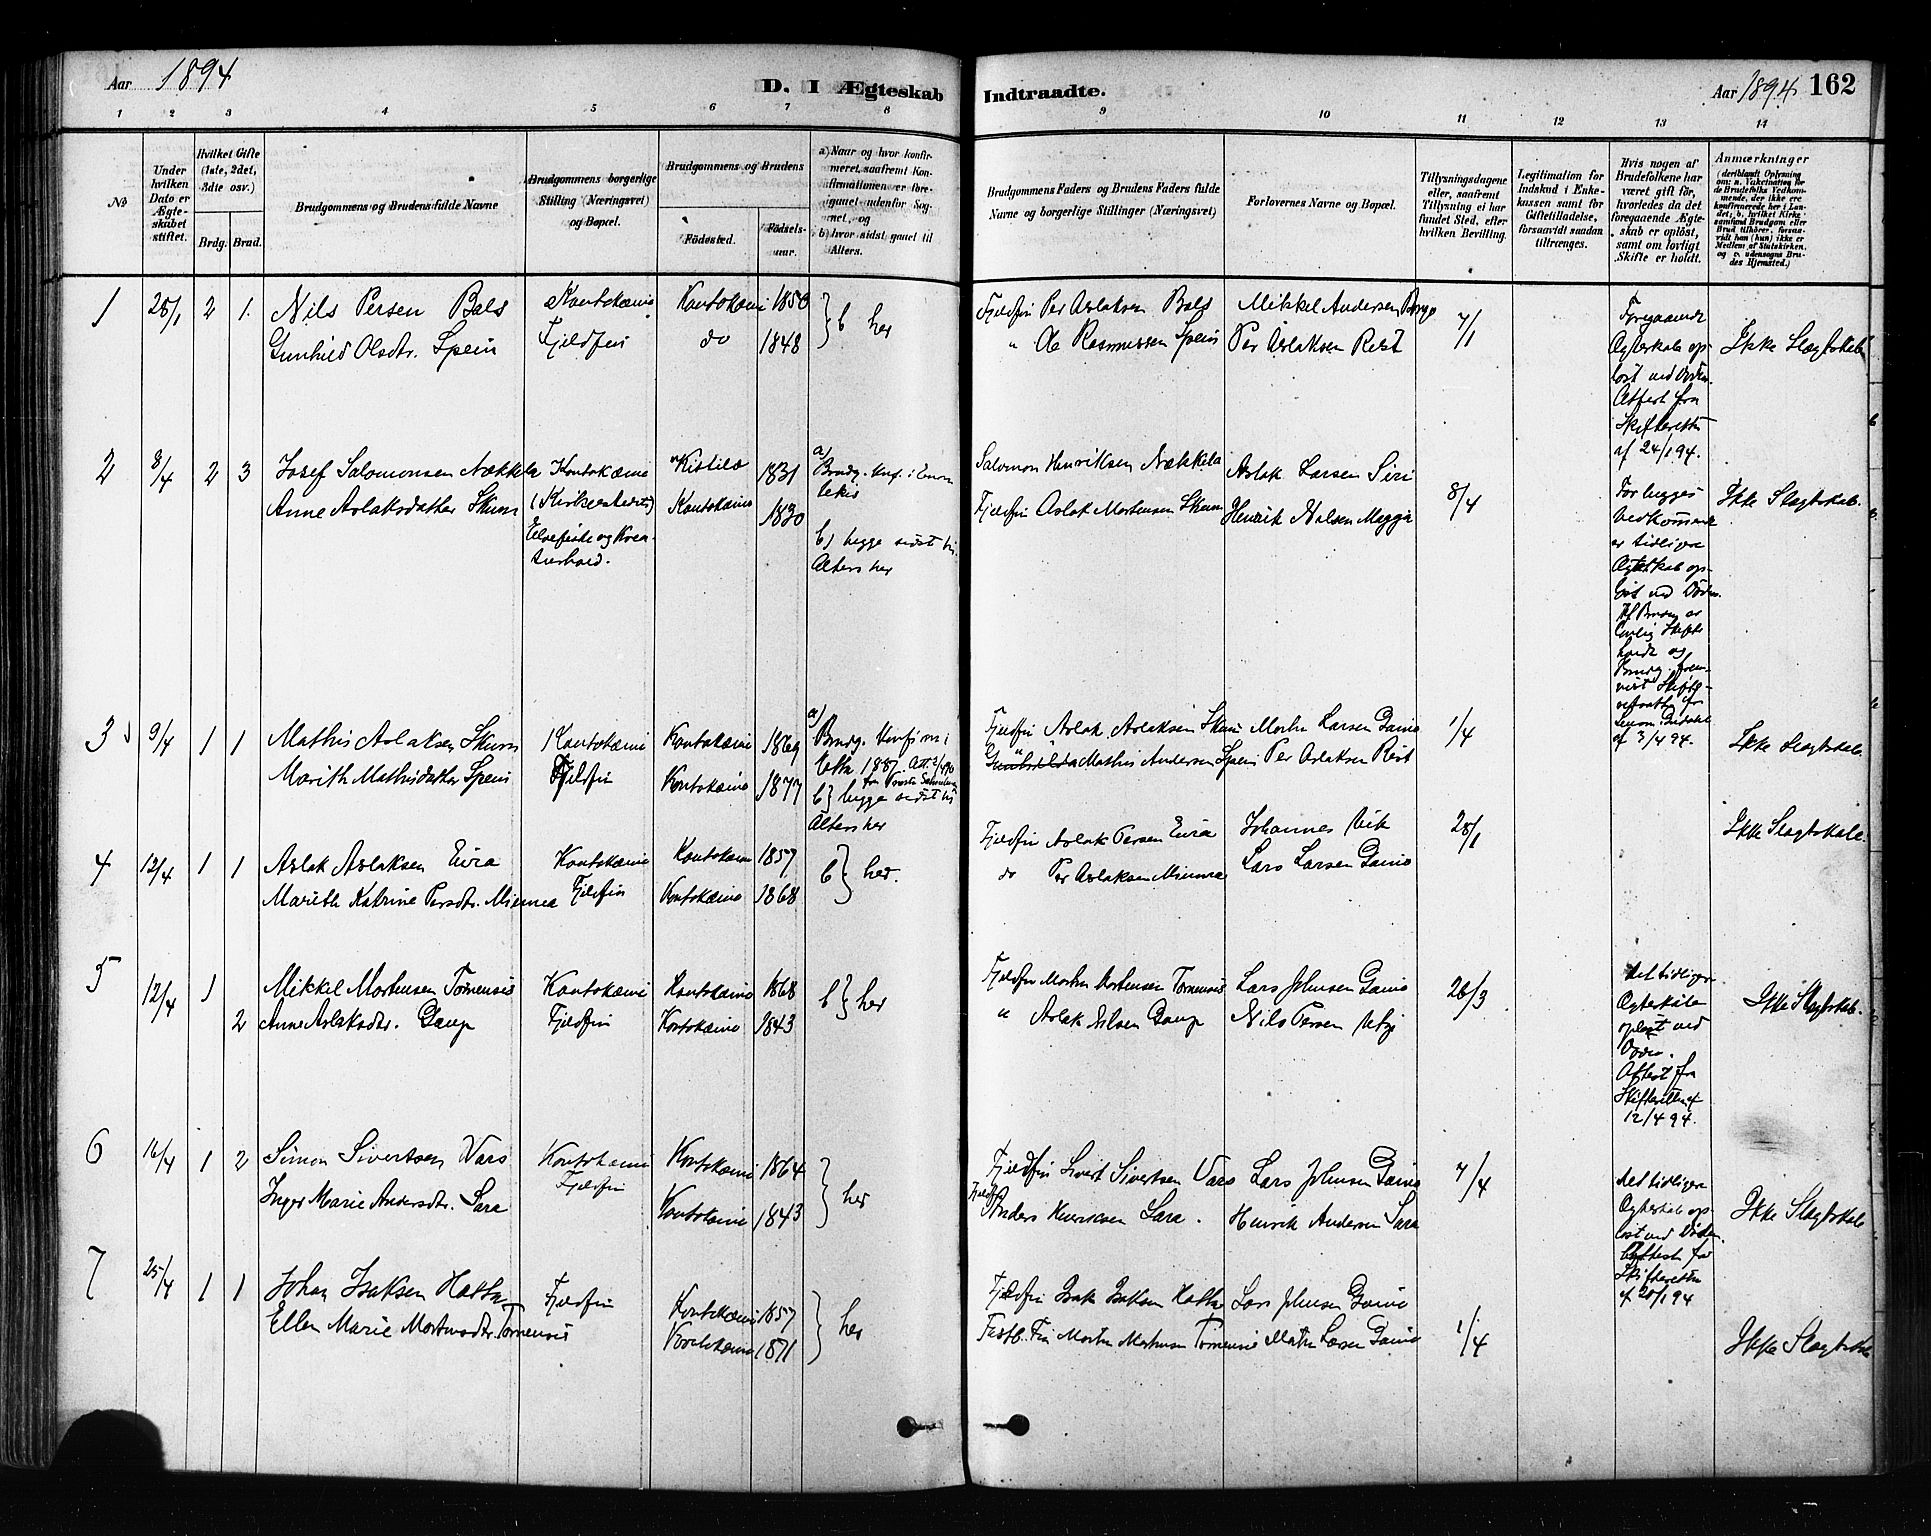 Aar 1894 D. I Ægteskab Indtraadte. Aar 1894 162
1 2 3 4 5 6 7 8 9 10 11 12 13 14
No
Under hvilken Dato er Ægteskabet stiftet.
Hvilket Gifte (1ste, 2det, 3die osv.)
Brdg. Brud.
Brudgommens og Brudens fulde Navne
Brudgommens borgerlige Stilling (Næringsvei) og Bopæl.
Brudgommens og Brudens
Fødested. Fødselsaar.
a) Naar og hvor konfirmeret, saafremt Konfirmationen er foregaaet udenfor Sognet, og
b) hvor sidst gaaet til Alters.
Brudgommens Faders og Brudens Faders fulde Navne og borgerlige Stillinger (Næringsvei)
Forlovernes Navne og Bopæl.
Tillysningsdagene eller, saafremt Tillysning ei har fundet Sted, efter hvilken Bevilling.
Legitimation for Indskud i Enkekassen samt for Giftetilladelse, forsaavidt saadan tiltrænges.
Hvis nogen af Brudefolkene har været gift før, hvorledes da det foregaaende Ægteskab er opløst, samt om lovligt Skifte er holdt.
Anmærkninger
1 25/1 2 1. Nils Persen Bals Kautokæino Kautokæino 1850 } b her Fjeldfin Per Aslaksen Bals Mikkel Andersen 7/1
Gunhild Olsdtr. Spein Fjeldfin do 1848 " Ole Rasmussen Spein Per Aslaksen Rist Ikke Slægtskab
Foregaaende
Ægteskab op-
løst ved Døden.
Attest fra
Skifteretten
af 24/1 94.
2 8/4 2 3 Josef Salomonsen Nækkela Kautokæino Kistilo 1831 a) Brudg. konf. i Salomon Henriksen Nækkela Aslak Larsen Siri 8/4
Anne Aslaksdatter Skum (Kirkestedet) Kautokæino 1830 Fjeldfin Aslak Mortensen Skum Henrik Nilsen Magga Ikke Slægtskab.
Elvefiske og Krea-
turhold.
b) begge sidst til
Alters her
er tidligere
Ægteskab op-
løst ved Døden.
af 3/4 94.
3 9/4 1 1 Mathis Aslaksen Skum Kautokæino Kautokæino 1869 a) Brudg. konfirm. i Fjeldfin Aslak Aslaksen Skum Morten Larsen Gaino 1/4
Marith Mathisdatter Spein Fjeldfin Kautokæino 1877 Mathis Andersen Spein Per Aslaksen Rist Ikke Slægtskab
b) begge sidst til
Alters her
4 12/4 1 1 Aslak Aslaksen Eira Kautokæino Kautokæino 1857 b } her. Fjeldfin Aslak Persen Eira Johannes 28/1 Ikke Slægtskab.
Marith Katrine Persdtr. Mienna Fjeldfin Kautokæino 1868 do Per Aslaksen Mienna Lars Larsen Gaino
5 12/4 1 Mikkel Mortensen Tornensis Kautokæino Kautokæino 1868 b } her Fjeldfin Morten Mortensen Tornensis Lars Johnsen Gaino 26/3 Ikke Slægtskab.
2 Anne Aslaksdtr. Gaup Fjeldfin Kautokæino 1843 " Aslak Nilsen Gaup Nils Persen Utsi
det tidligere
Ægteskab
opløst ved
Døden.
Attest fra
Skifteretten af
12/4 94.
6 16/4 1 2 Simon Sivertsen Vars Kautokæino Kautokæino 1864 } her Fjeldfin Sivert Sivertsen Vars Lars Johnsen Gaino 7/4
Inger Marie Andersdtr. Sara Fjeldfin Kautokæino 1843 Fjeldfin Anders Sara. Henrik Andersen Sara Ikke Slægtskab
det tidligere
Ægteskab op-
løst ved Døden.
Attest fra
Skifteretten
af 20/1 94
7 25/4 1 1 Johan Isaksen Hætta Fjeldfin Kautokæino 1857 } her Fjeldfin Isak Isaksen Hætta Lars Johnsen Gaino 1/4
Ellen Marie Mortensdtr. Tornensis Kautokæino 1871 Fastb. Fin Morten Mortensen Tornensis Morten Larsen Gaino Ikke Slægtskab